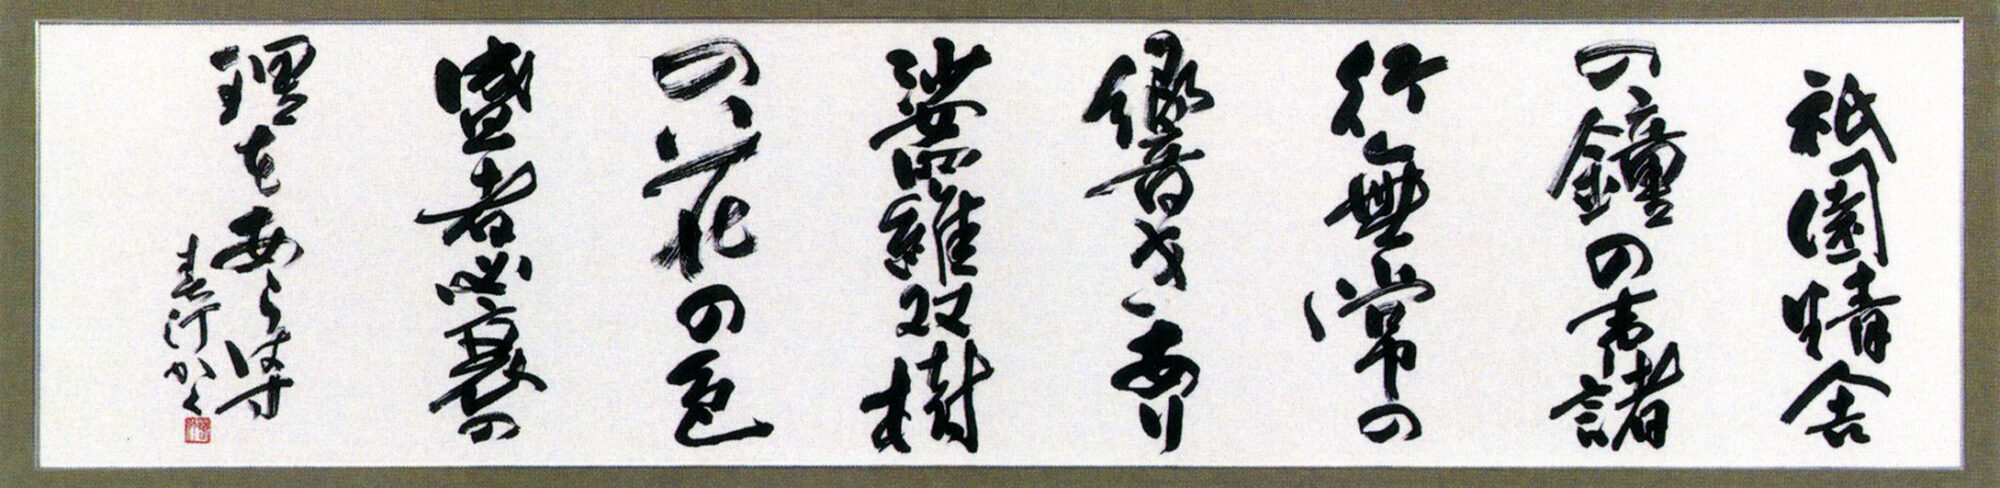 祇園精舎
の鐘の声諸
行無常の
響きあり
娑羅双樹
の花の色
盛者必衰の
理をあらはす
かく